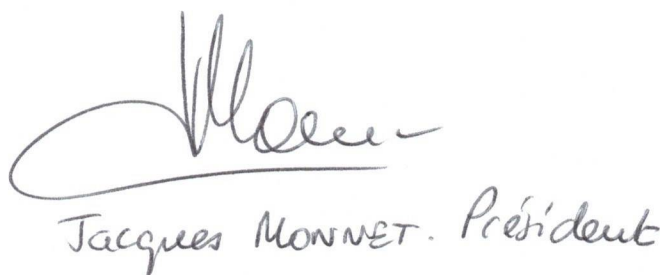 Jacques MONNET. Président